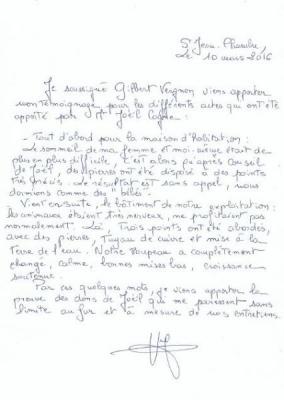 St Jean-Chambre,
Le 10 mars 2016
Je soussigné Gilbert Vergnon viens apporter
mon témoignage pour les différents actes qui ont été
apporté par Mr Joël
- Tout d'abord pour la maison d'habitation :
Le sommeil de ma femme et moi-même était de
plus en plus difficile, c'est alors qu'après conseil
de Joël, des pierres ont été disposé à des points
très précis. Le résultat est sans appel, nous
dormions comme des "bébés".
Vient ensuite, le bâtiment de notre exploitation :
Des animaux étaient très nerveux, ne profitaient pas
normalement. Là, trois points ont été abordés,
avec des pierres, Tuyau de cuivre et mise à la
Terre de l'eau. Notre troupeau a complètement
changé, calme, bonnes mises bas, croissance
soutenue.
Par ces quelques mots, je viens apporter la
preuve des dons de Joël qui me paraissent sans
limite au fur et à mesure de nos entretiens.